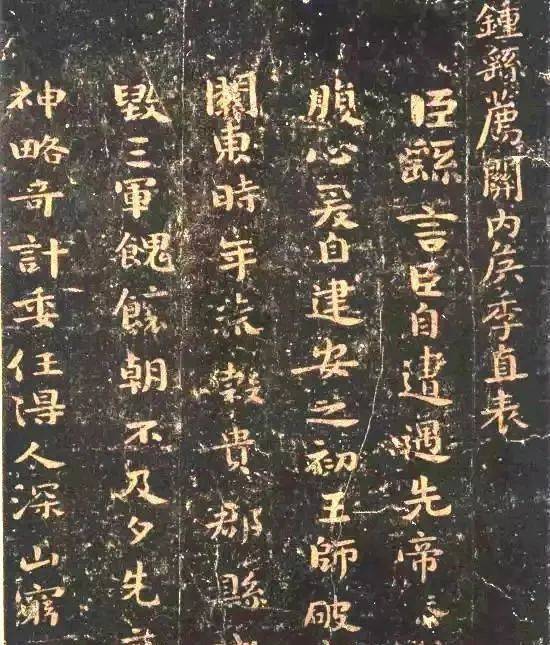 鍾繇薦關内矦季直表
臣繇言臣自遭遇先帝
腹心爰自建安之初王師破
關東時年荒穀貴郡縣
毀三軍餽饟朝不及夕先
神略奇計委任得人深山窮